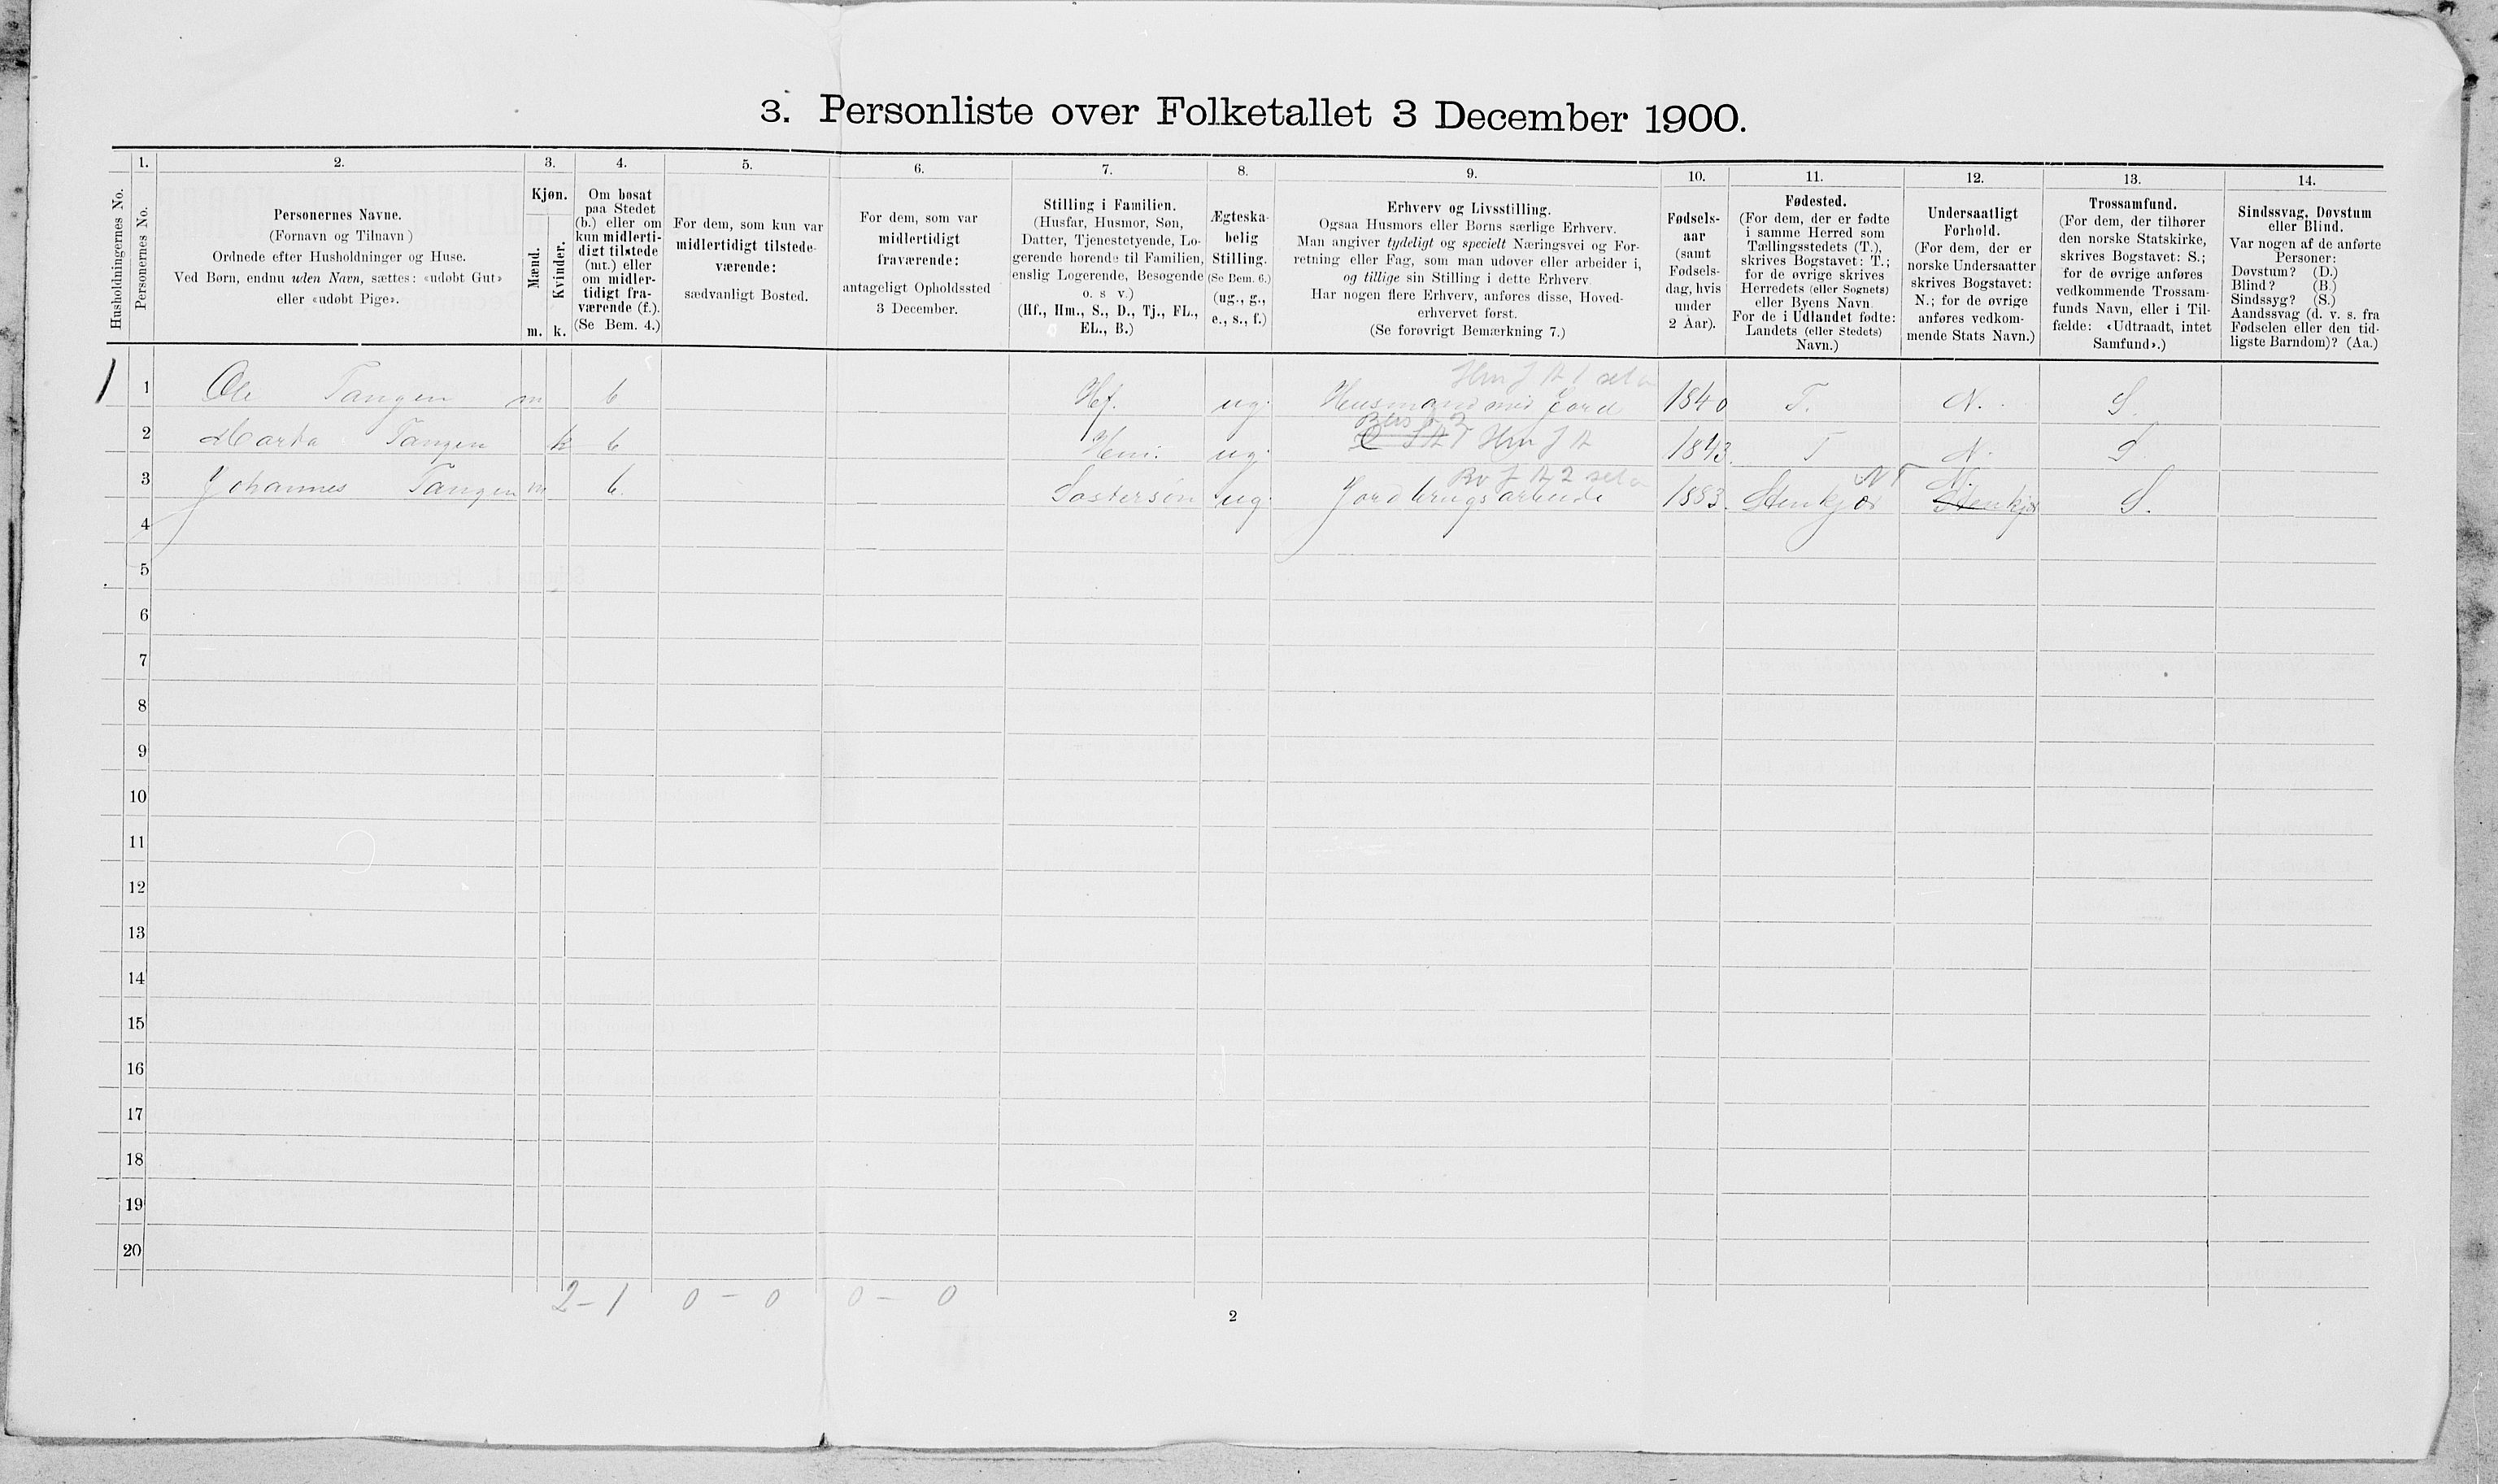 3. Personliste over Folketallet 3 December 1900.
1. 2. 3. 4. 5. 6. 7. 8. 9. 10. 11. 12. 13. 14.
Husholdningernes No.
Personernes No.
Personernes Navne.
(Fornavn og Tilnavn)
Ordnede efter Husholdninger og Huse.
Ved Børn, endnu uden Navn, sættes: «udøbt Gut»
eller «udøbt Pige».
Kjøn.
Mænd.
Kvinder.
m. k.
Om bosat
paa Stedet
(b.) eller om
kun midlerti-
digt tilstede
(mt.) eller
om midler-
tidigt fra-
værende (f.).
(Se Bem. 4.)
For dem, som kun var
midlertidigt tilstede-
værende:
sædvanligt Bosted.
For dem, som var
midlertidigt
fraværende:
antageligt Opholdssted
3 December.
Stilling i Familien.
(Husfar, Husmor, Søn,
Datter, Tjenestetyende, Lo-
gerende hørende til Familien,
enslig Logerende, Besøgende
o. s v.)
(Hf., Hm., S., D., Tj., FL.,
EL., B.)
Ægteska-
belig
Stilling.
(Se Bem. 6.)
(ug., g.,
e., s., f.)
Erhverv og Livsstilling.
Ogsaa Husmors eller Børns særlige Erhverv.
Man angiver tydeligt og specielt Næringsvei og For-
retning eller Fag, som man udøver eller arbeider i,
og tillige sin Stilling i dette Erhverv
Har nogen flere Erhverv, anføres disse, Hoved-
erhvervet først.
(Se forøvrigt Bemærkning 7.)
Fødsels-
aar
(samt
Fødsels-
dag, hvis
under
2 Aar).
Fødested.
(For dem, der er fødte
i samme Herred som
Tællingsstedets (T.),
skrives Bogstavet: T.;
for de øvrige skrives
Herredets (eller Sognets)
eller Byens Navn.
For de i Udlandet fødte:
Landets (eller Stedets)
Navn.)
Undersaatligt
Forhold.
(For dem, der er
norske Undersaatter
skrives Bogstavet:
N.; for de øvrige
anføres vedkom-
mende Stats Navn.)
Trossamfund.
(For dem, der tilhører
den norske Statskirke,
skrives Bogstavet: S.;
for de øvrige anføres
vedkommende Trossam-
funds Navn, eller i Til-
fælde: «Udtraadt, intet
Samfund».)
Sindssvag, Døvstum
eller Blind.
Var nogen af de anførte
Personer:
Døvstum? (D.)
Blind? (B.)
Sindssyg? (S.)
Aandssvag (d. v. s. fra
Fødselen eller den tid-
ligste Barndom)? (Aa.)
1 1 Ole Tangen m b Hf. ug. Husmand med Jord 1840 T. N. S.
2 Marta Tangen k b Hm. ug. 1843. T N. S
3 Johannes Tangen m b. Søstersøn ug. Jordbrugsarbeide 1883. Stenkjær NT Stenkjær N. S.
4
5
6
7
8
9
10
11
12
13
14
15
16
17
18
19
20
2 - 1 0 - 0 0 - 0
2